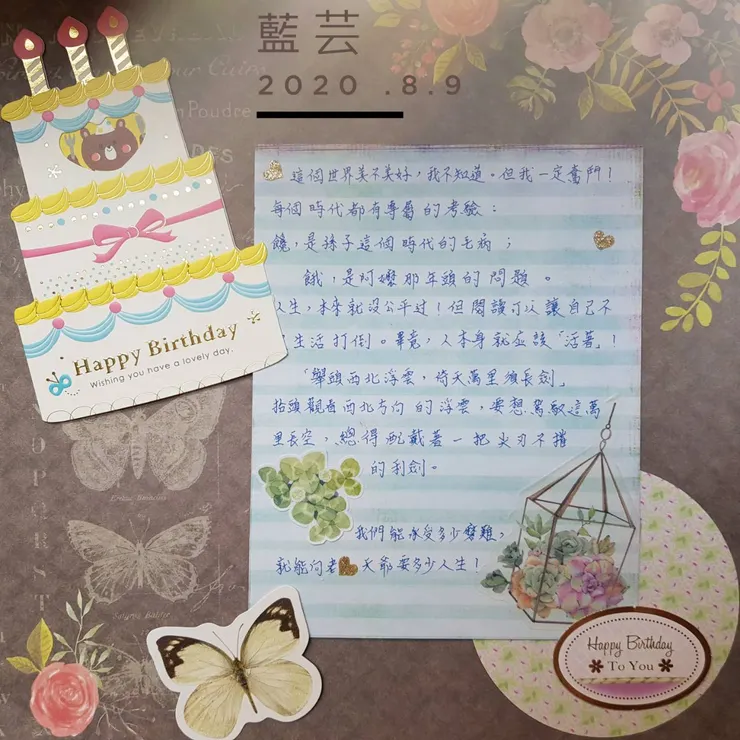 藍芸
2020 .8.9
Happy Birthday
Wishing you have a lovely day.
這個世界美不美好，我不知道。但我一定奮鬥！
每個時代都有專屬的考驗：
饞，是孫子這個時代的毛病；
餓，是阿嬤那年頭的問題。
人生，本來就沒公平过！但閱讀可以讓自己不
生活打倒。畢竟，人本身就应該「活著」！
「舉頭西北浮雲，倚天萬里須長劍」
抬頭觀看西北方向的浮雲，要想駕馭這萬
里長空，總得配戴著一把尖刃不摧
的利劍。
我們能承受多少磨難，
就能向老天爺要多少人生！
Happy Birthday
To You
Poudre